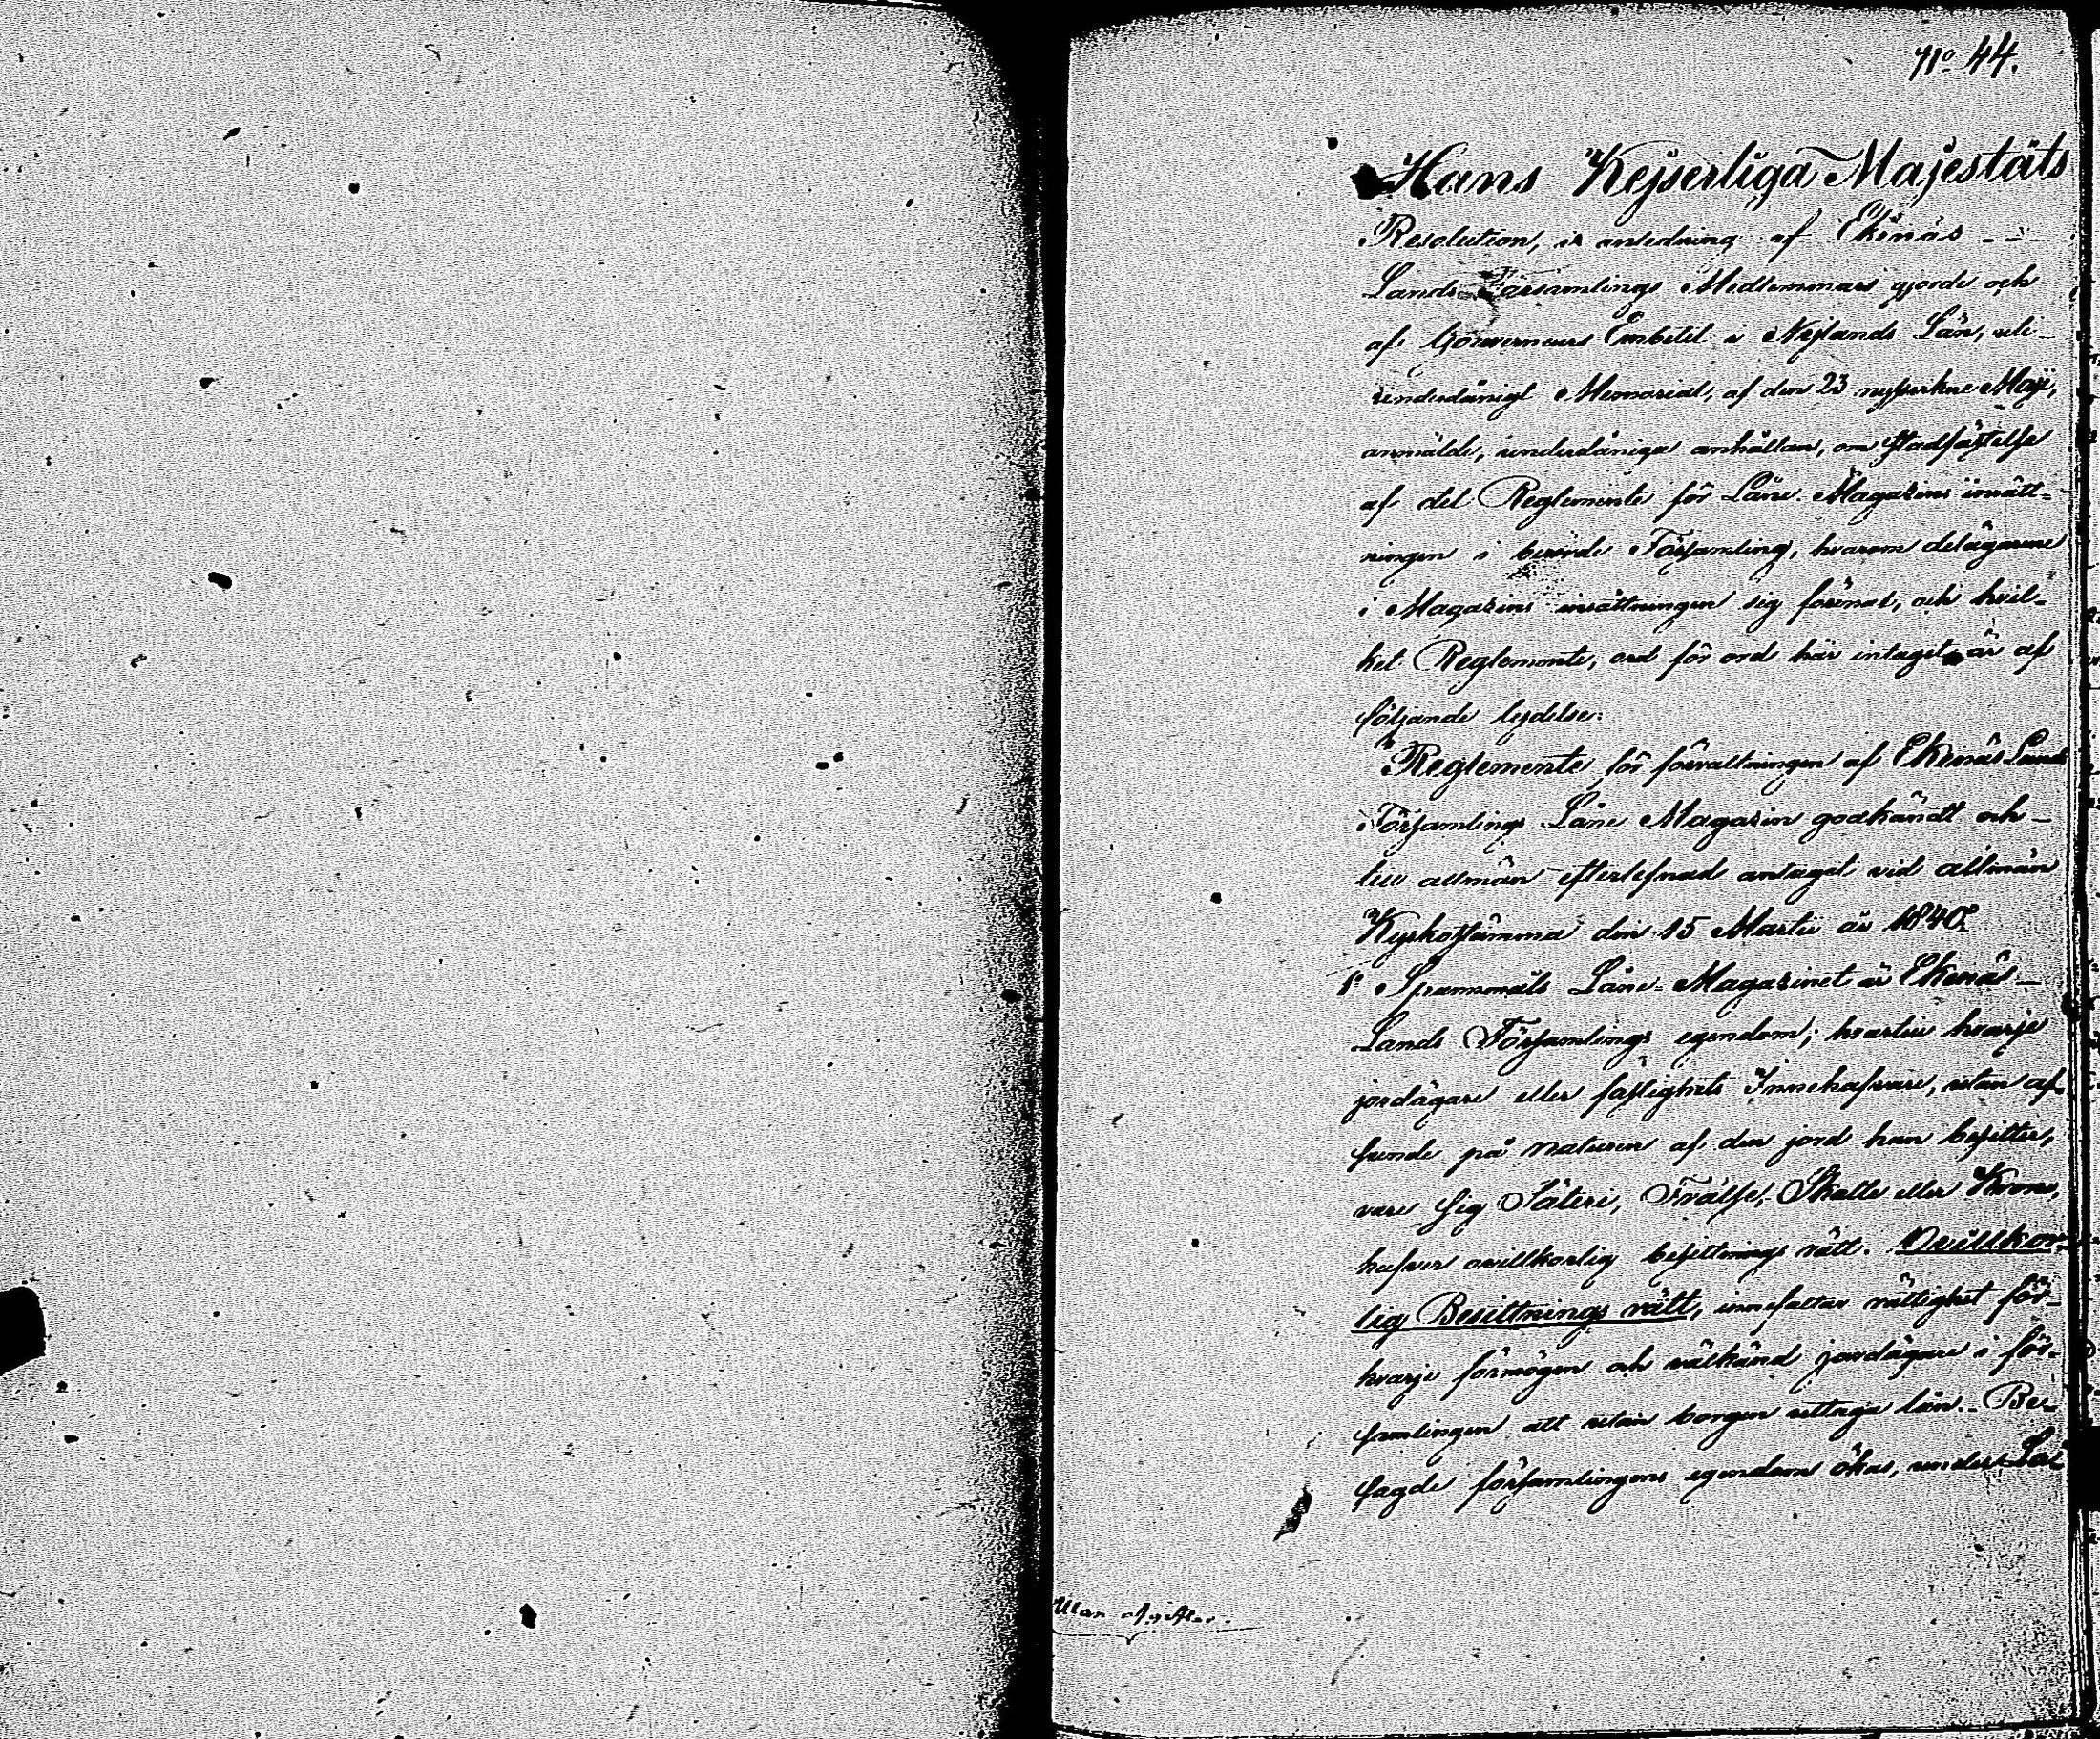 No 44.
Hans Kejserliga Majestäts
Resolution, i anledning af Ekenäs
Lands Församlings Medlemmars gjorde och
af Gouverneurs Embetet i Nylands Län, uti
underdånigt Memorial, af den 23 nyssvekne Maji,
anmälde, underdåniga anhållan, om stadfästelse
af det Reglemente för Låne-Magazins inrätt-
ningen i berörde Församling, hvarom delägarne
i Magazins inrättningen sig förenat, och hvil-
ket Reglemente, ord för ord här intaget, är af
följande lydelse:
Reglemente för förvaltningen af Ekenäs Lands
Församlings Låne Magazin godkändt och
till allmän efterlefnad antaget vid allmän
Kyrkostämma den 15 Martii år 1840.
1o Spannmåls Låne-Magazinet är Ekenäs
Lands Församlings egendom; hvartill hvarje
jordägare eller fastighets Innehafvare, utan af-
seende på naturen af den jord han besitter,
vare sig Säteri, Frälse, Skatte eller Krono,
hafver ovillkorlig besittnings rätt. Ovillkor-
lig Besittnings rätt, innefattar rättighet för
hvarje förmögen och välkänd jordägare i för-
samlingen att utan borgen uttaga lån. Be-
sagde församlingens egendom ökas, under
Utan afgifter.